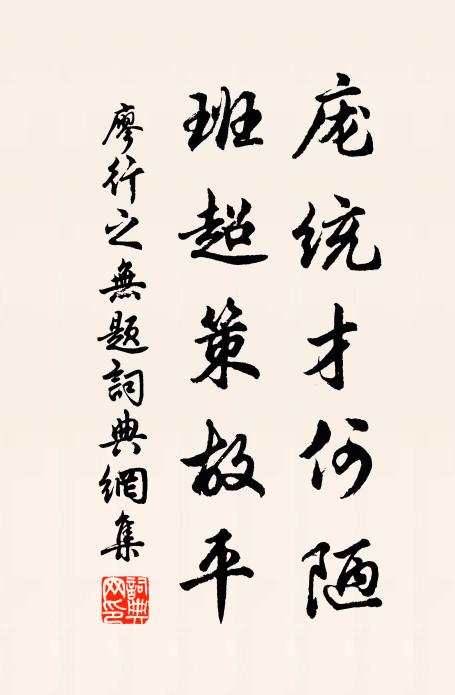 庞统才何陋
班超策故平
廖行之無题詞典網集
詞典
网印